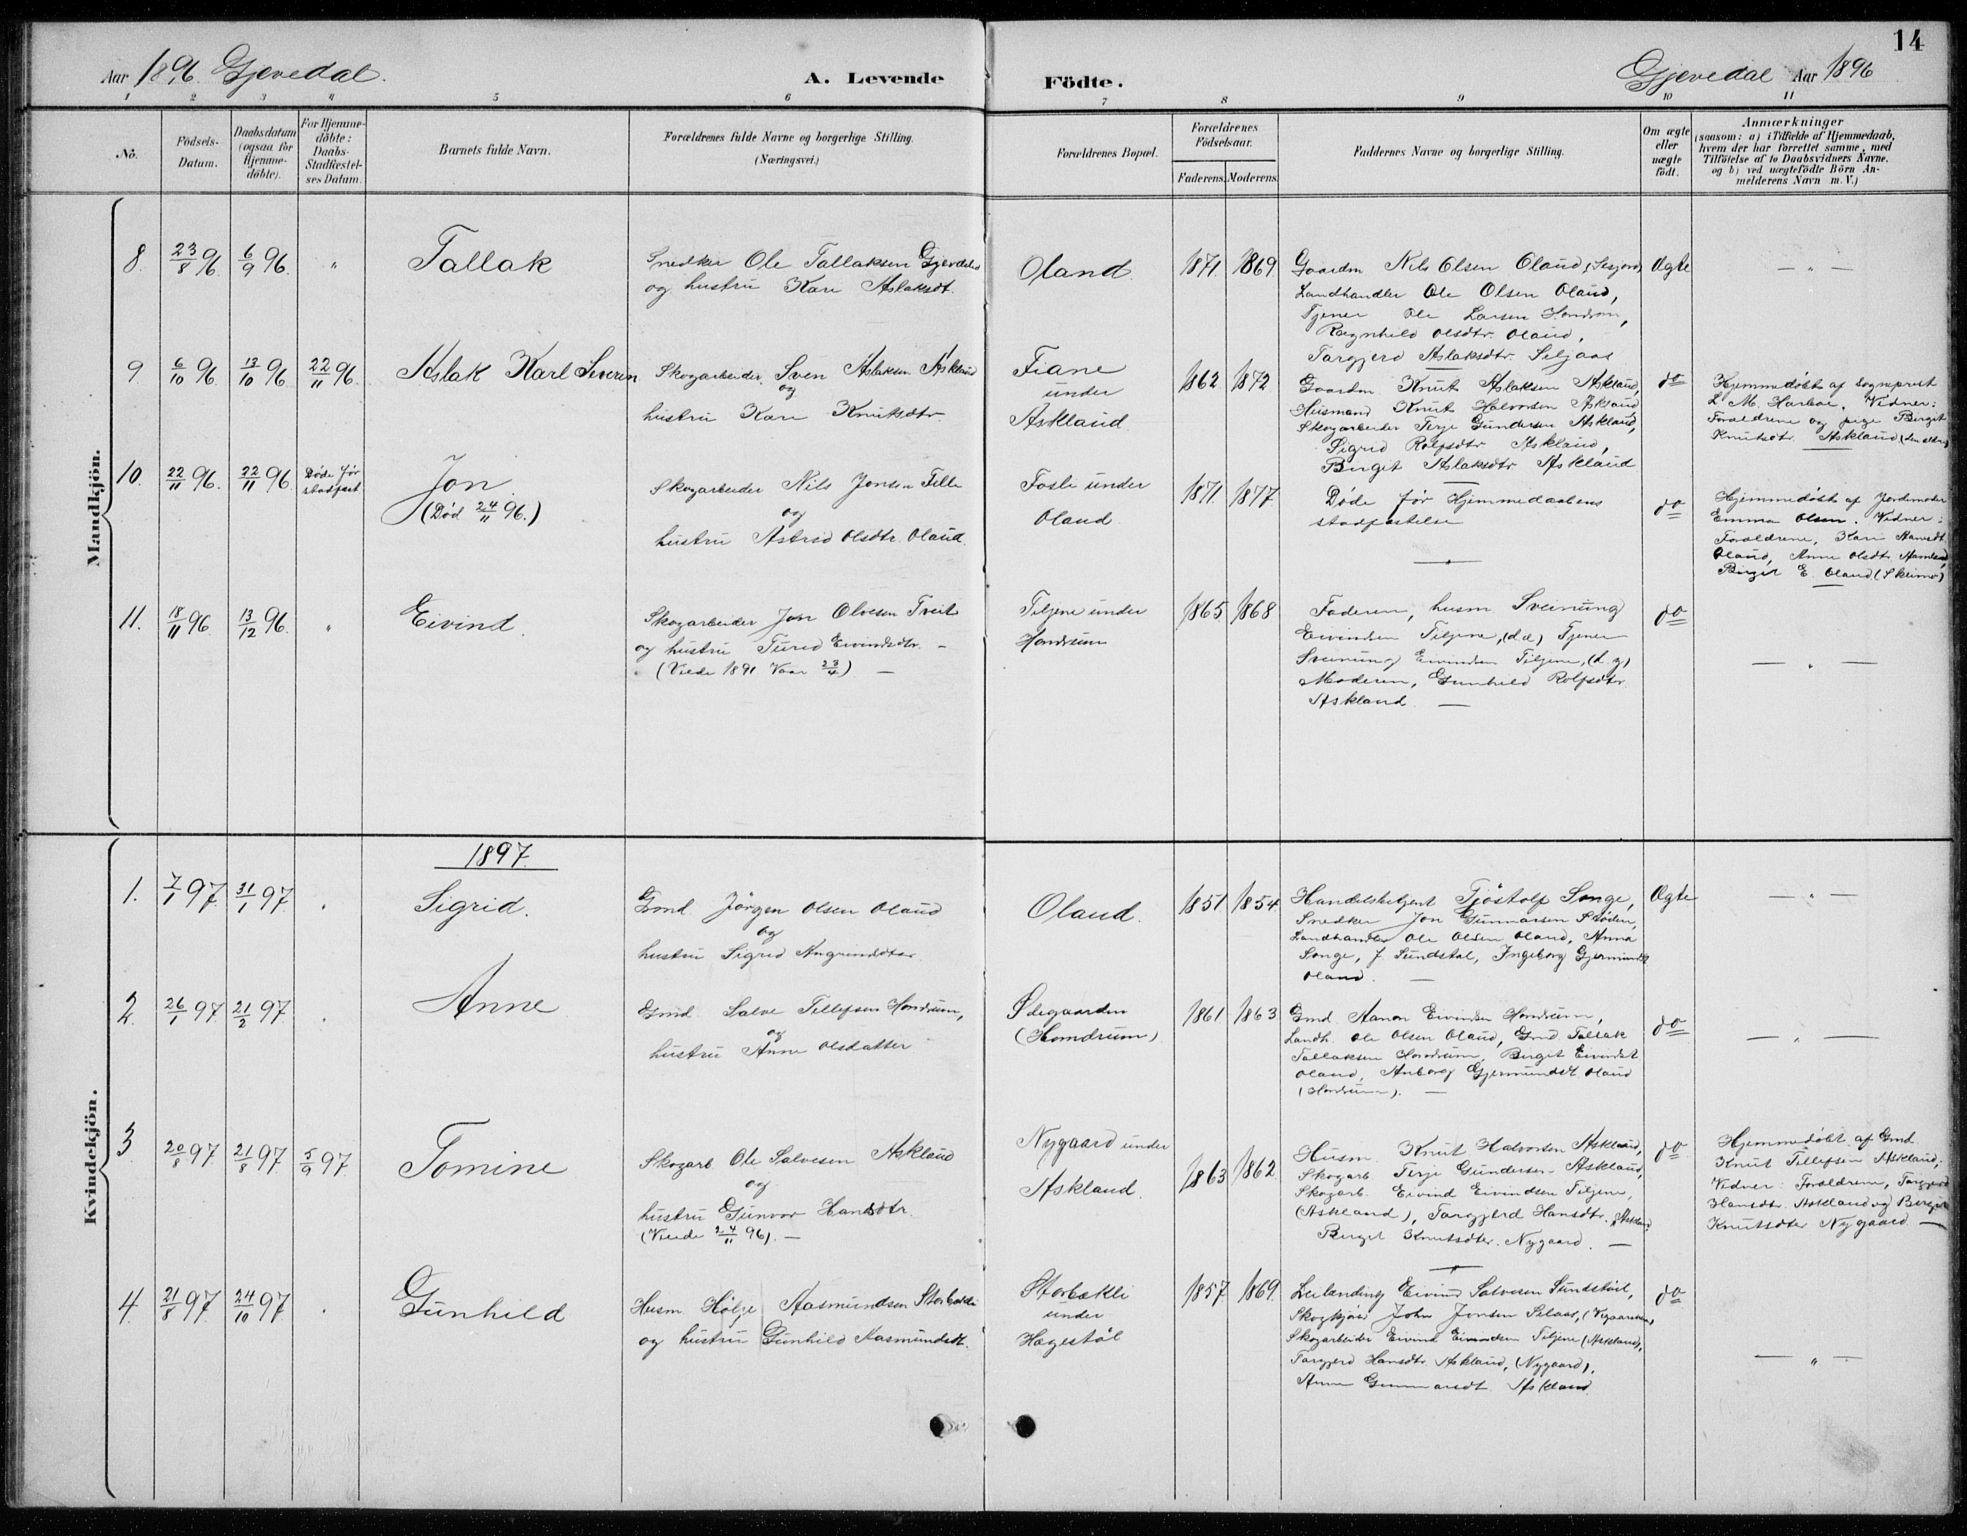 14
Aar 1896. Gjevedal.
A. Levende
Födte.
Gjevedal Aar 1896
1 2 3 4 5 6 7 8 9 10 11
No.
Födsels-
Datum.
Daabsdatum
(ogsaa for
Hjemme-
döbte).
For Hjemme-
döbte:
Daabs-
Stadfæstel-
ses Datum.
Barnets fulde Navn.
Forældrenes fulde Navne og borgerlige Stilling.
(Næringsvei.)
Forældrenes Bopæl.
Forældrenes
Födselsaar.
Faderens. Moderens.
Faddernes Navne og borgerlige Stilling.
Om ægte
eller
uægte
födt.
Anmærkninger
(saasom: a) i Tilfælde af Hjemmedaab,
hvem der har forrettet samme, med
Tilföielse af to Daabsvidners Navne,
og b) ved uægtefödte Börn An-
melderens Navn m. V.)
Mandkjön.
8. 23/8 96. 6/9 96. " Tallak
Snedker Ole Tallaksen Gjevedal
og hustru Kari Aslaksdt.
Oland 1871. 1869
Gaardm Nils Olsen Oland,
Landhandler Ole Olsen Oland,
Tjener Ole Larsen
Ragnhild Olsdtr. Oland,
Targjerd Aslaksdtr. Seljaas
Ægte — " —
9 6/10 96 13/10 96 22/11 96. Aslak Karl Severin
Skogarbeider. Sven Aslaksen Askland
og
hustru Kari Knutsdtr.
Fiane
under
Askland.
1862 1872
Gaardm Knut Aslaksen Askland,
Husmand Knut Halvorsen Askland
Skogarbeider Terje Gundersen Askland,
Sigrid Rolfsdtr Askland,
Birget Aslaksdtr Askland
do
Hjemmedöbt af sogneprest
L. M. Harboe. Vidner:
Forældrene og pige Birget
Knutsdtr. Askland
10. 22/11 96. 22/11 96. Døde før
stadfæst
Jon
(Død 24/11 96.)
Skogarbeider Nils Jonsen
og
hustru Astrid Olsdtr. Oland.
Fosli under
Oland.
1871 1877
Døde før Hjemmedaabens
stadfæstelse
do
Hjemmedöbt af Jordmoder
Emma Olsen. Vidner:
Forældrene, Kari
Oland, Anne Olsdtr.
Birgit E. Oland
11. 18/11 96. 13/12 96. " Eivind.
Skogarbeider Jon Olvesen Tveit
og hustru Turid Eivindsdtr. —
(Viede 1891 23/4) —
Tiljene under
Hondrum
1865 1868
Faderen, husm Sveinung
Eivindsen Tiljene, (d.æ) Tjener
Sveinung Eivindsen Tiljene, (d. y)
Moderen, Gunhild Rolfsdtr.
Askland. —
do
— " —
Kvindekjön.
1897.
1. 7/1 97. 31/1 97. . Sigrid.
Gmd. Jörgen Olsen Oland
og
hustru Sigrid
Oland. 1851 1854
Handelsbetjent Tjöstolf Songe,
Snedker Jon Gunnarsen
Landhandler Ole Olsen Oland, Anna
Songe, Ingeborg
Oland. —
Ægte — " —
2. 26/1 97. 21/2 97. . Anne
Gmd. Salve Tellefsen Hondrum,
og
hustru Anne Olsdatter
Ødegaarden
(Homdrum)
1861 1863
Gmd. Aanon Eivindsen Hondrum,
Landh. Ole Olsen Oland, Gmd Tallak
Tallaksen Hondrum, Birget Eivindsdt
Oland, Gjermundsdt. Oland
(Hondrum). —
do
— " —
3 20/8 97. 21/8 97 5/9 97. Tomine
Skogarb Ole Salvesen Askland
og
hustru Gunvor Hansdtr.
(Viede 24/11 96). —
Nygaard under
Askland.
1863 1862
Husm Knut Halvorsen Askland,
Skogarb Terje Gundersen Askland,
Skogarb. Eivind Eivindsen Tiljene,
(Askland), Targjerd Hansdtr. Askland
Birget Knutsdter. Nygaard. —
do
Hjemmedöbt af Gmd
Knut Tellefsen Askland,
Vidner: Forældrene, Targjerd
Hansdtr. Askland og Birget
Knutsdter Nygaard. —
4. 21/8 97 24/10 97 . Gunhild
Husm Aasmundsen Storbækli
og hustru Gunhild Aasmundsdt.
Storbækli
under
Hægestöl
1857 1869.
Leilænding Eivind Salvesen
John Jonsen
Skogarbeider Eivind Eivindsen Tiljene (Askland),
Targjerd Hansdtr Askland, (Nygaard),
Anne Gunnarsdt. Askland
do
— " —